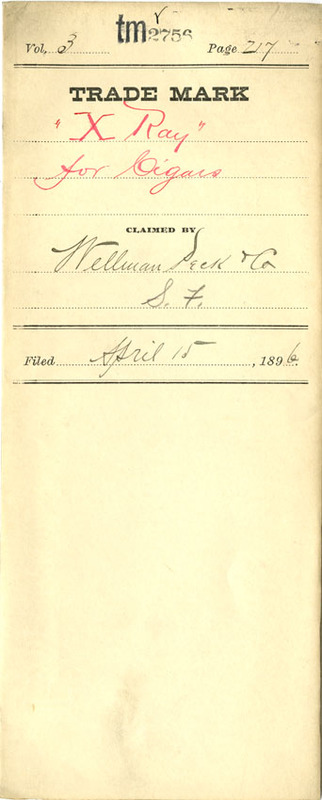 tm 2756
Vol, 3 Page 217
TRADE MARK
"X Ray"
for Cigars
CLAIMED BY
Wellman Peck & Co
S. F.
Filed April 15, 1896